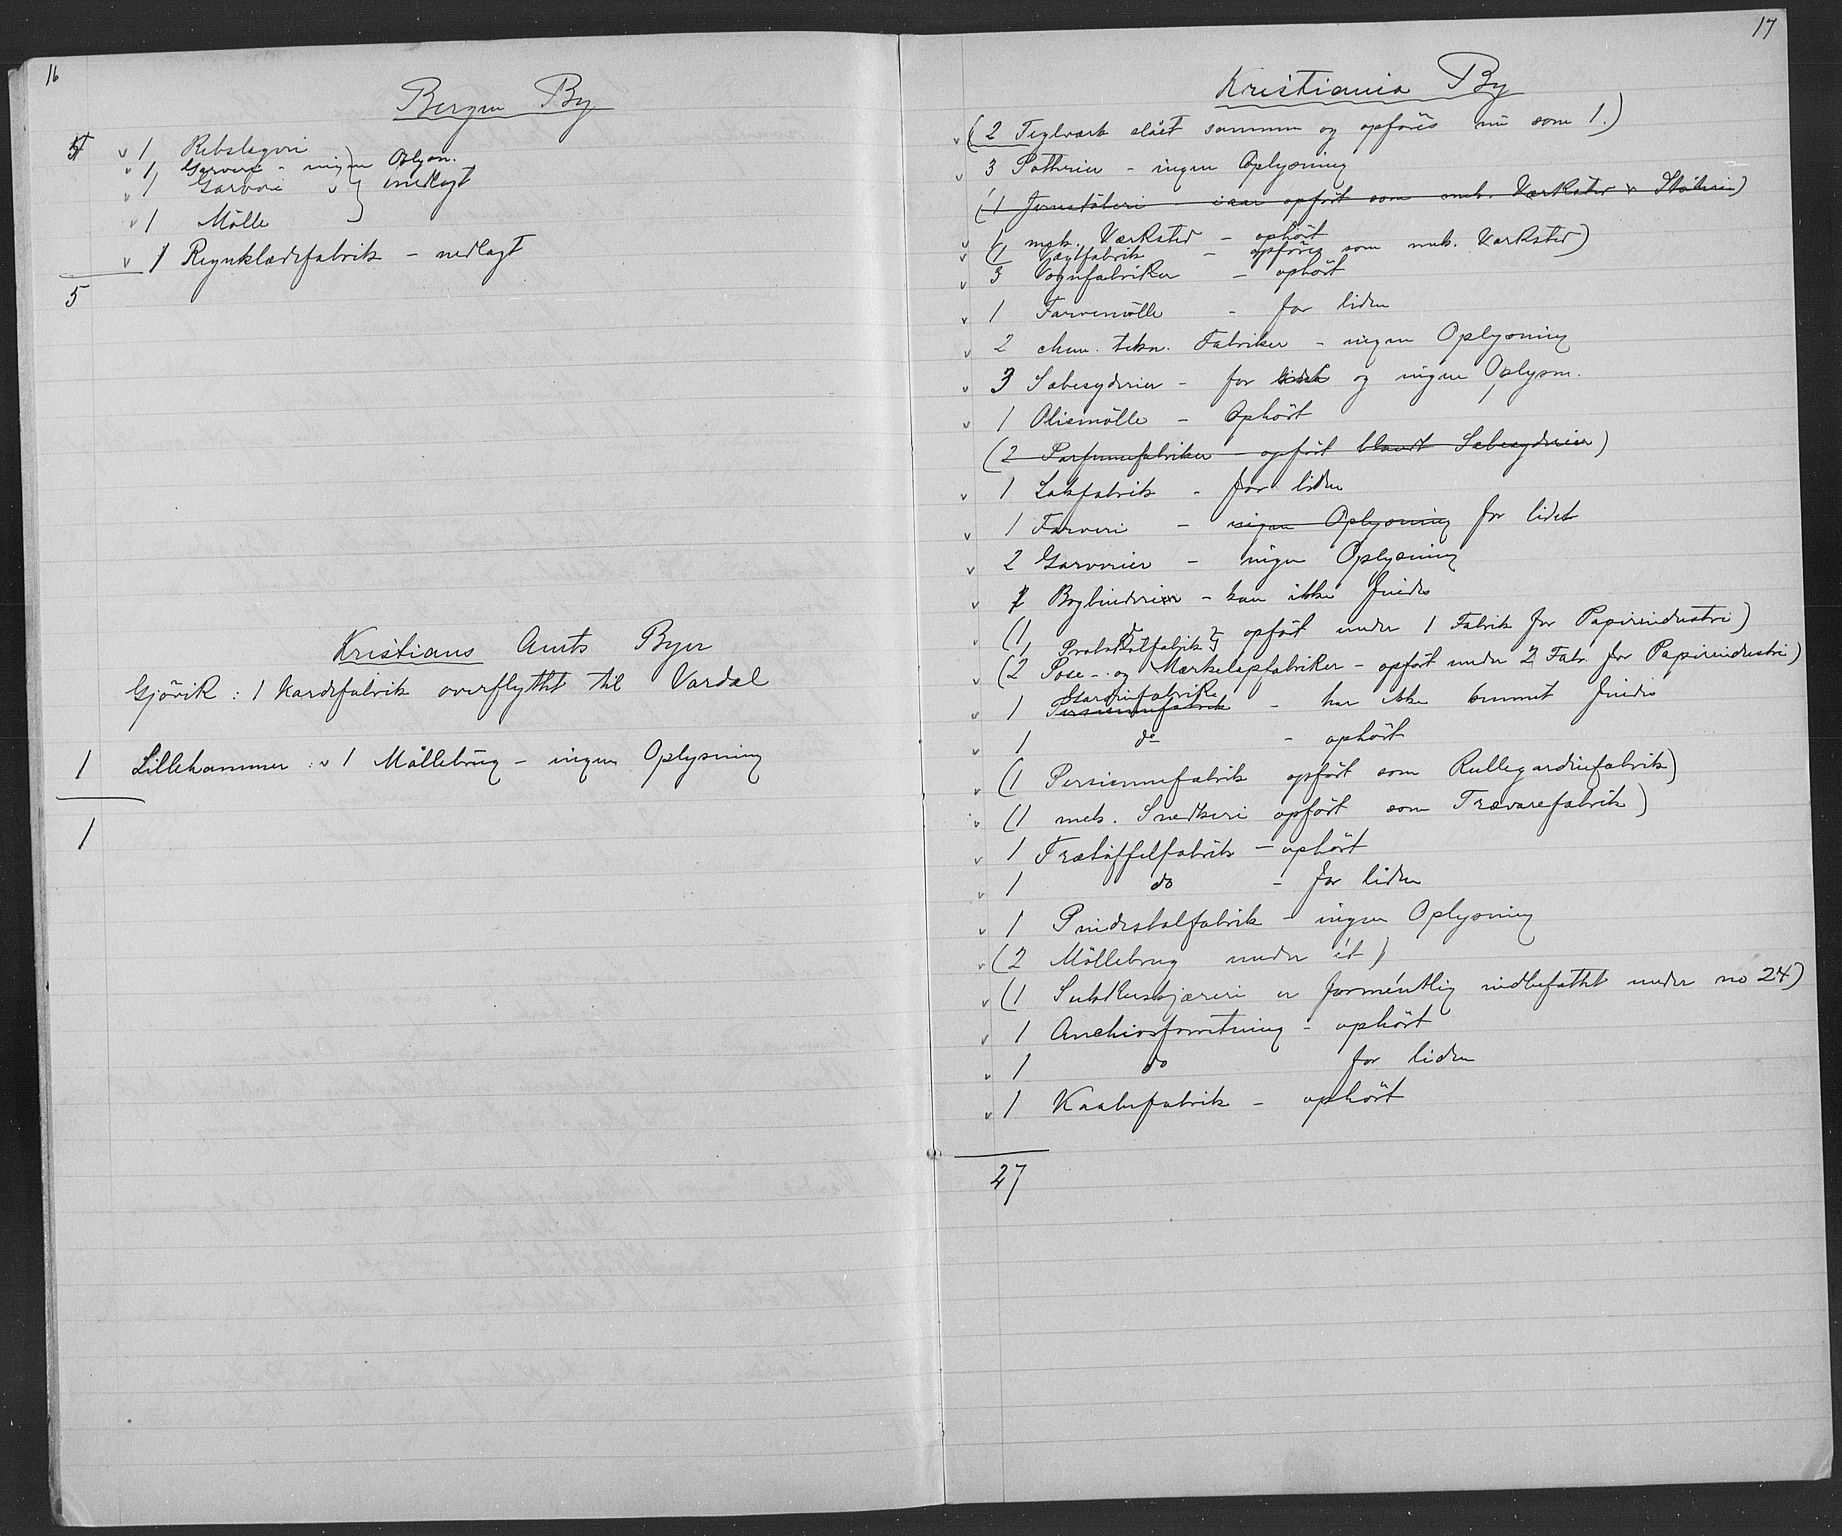 16
Bergen By
5 v 1 Rebslageri
v 1 Garveri - ingen Oplysn.
v 1 Garveri v } nedlagt
v 1 Mölle
v 1 Regnklædefabrik - nedlagt
5
Kristians Amts Byer
Gjövik : 1 Kardefabrik overflyttet til Vardal
1 Lillehammer : v 1 Möllebrug - ingen Oplysning
1
17
Kristiania By
v (2 Teglværk slået sammen og opföres nu som 1.)
v 3 Potterier - ingen Oplysning
(1 Jernstöberi - opfört som mek. Værksted v Stöberi)
v 1 mek. Værksted - ophört
v (1 Vægtfabrik - opföres som mek. Værksted)
v 3 Vognfabriker - ophört
v 1 Farvemölle - for liden
v 2 chem. tekn. Fabriker - ingen Oplysning
v 3 Sæbesyderier - for lidet og ingen Oplysn.
v 1 Oliemölle - Ophört
(2 Parfumefabriker - opfört blandt Sæbesyderier)
v 1 Lakfabrik - for liden
v 1 Farveri - ingen Oplysning for lidet
v 2 Garverier - ingen Oplysning
v 1 Bogbinderier - kan ikke findes
v (1 do opfört under 1 Fabrik for Papirindustri)
v (2 Pose- og Mærkelapfabriker - opfört under 2 Fabr. for Papirindustri)
v 1 Persiennefabrik Gardinfabrik - har ikke kunnet findes
v 1 do - ophört
v (1 Persiennefabrik opfört som Rullegardinfabrik)
v (1 mek. Snedkeri opfört som Trævarefabrik)
v 1 Trætöffelfabrik - ophört
v 1 do - for liden
v 1 Pindestolfabrik - ingen Oplysning
v (2 Möllebrug under ét)
v (1 Sukkerskjæreri er formentlig indbefattet under no 24)
v 1 Anchiosforretning - ophört
v 1 do for liden
v 1 Kaabefabrik - ophört
27